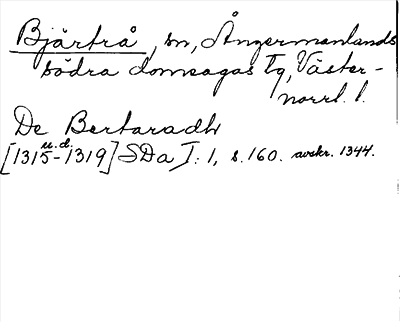 Bjärtrå, sn, Ångermanlands
södra domsagas tg, Väster-
norrl. l.
De Bertaradh
u.d.
[1315-1319] SDa I: 1, s. 160. avskr. 1344.